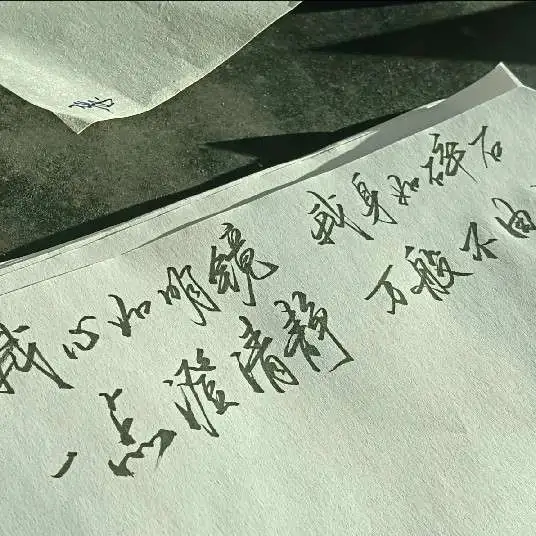 我心如明镜 我身如磐石
一点澄清静 万般不由